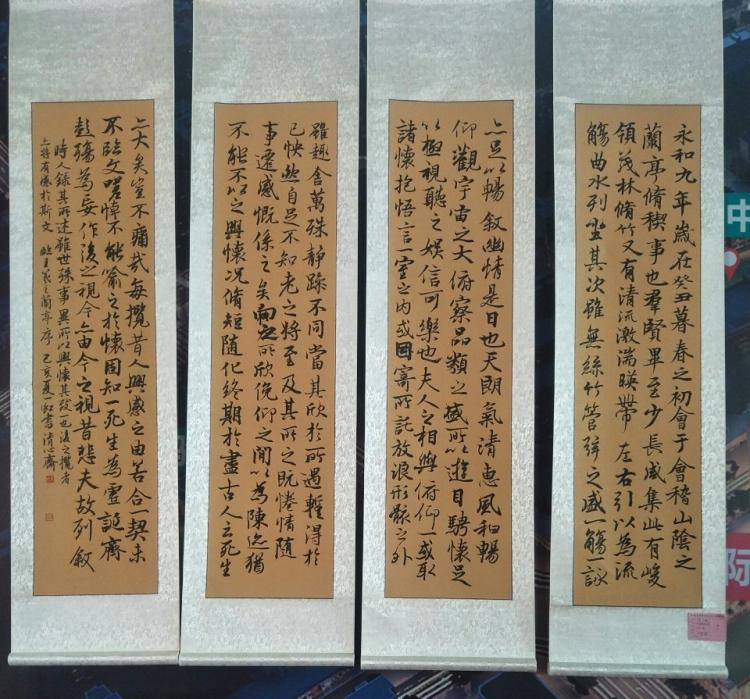 永和九年歲在癸丑暮春之初會于會稽山陰之
蘭亭脩稧事也羣賢畢至少長咸集此有峻
領茂林脩竹又有清流激湍暎帶左右引以為流
觴曲水列坐其次雖無絲竹管弦之盛一觴詠
亦足以暢叙幽情是日也天朗氣清惠風和暢
仰觀宇宙之大俯察品類之盛所以遊目騁懷足
以極視聽之娛信可樂也夫人之相與俯仰一或取
諸懷抱悟言一室之内或因寄所託放浪形骸之外
雖趣舍萬殊静躁不同當其欣於所遇暫得於
己怏然自足不知老之將至及其所之既惓情隨
事遷感慨係之矣向之所欣俛仰之間以為陳迹猶
不能不以之興懷况脩短随化終期於盡古人云死生
亦大矣豈不痛哉每攬昔人興感之由若合一契未
不臨文嗟悼不能喻之於懷固知一死生為虛誕齊
彭殤為妄作後之視今亦由今之視昔悲夫故列叙
時人録其所述雖世殊事異所以興懷其致一也後之攬者
亦將有感於斯文 臨王羲之蘭亭序 己亥夏 書清心齋
中
际